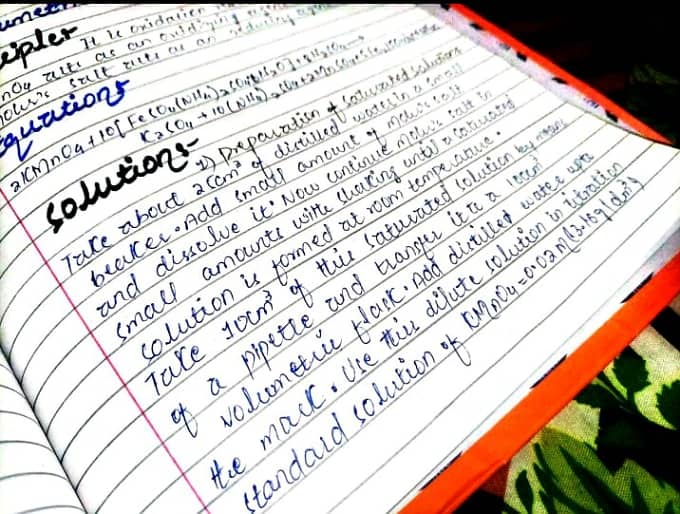 ciples
It is oxidation
nO4 acts as an oxidizing
Mohr's salt acts as an reducing agent
Equations
2KMnO4 + 10[FeSO4(NH4)2SO4
K2SO4 + 10(NH4)2SO4
Solutions-
1) Preparation of saturated solutions
Take about 25cm³ of distilled water in a small
beaker. Add small amount of Mohr's salt
and dissolve it. Now continue Mohr's salt in
small amounts with shaking until a saturated
solution is formed at room temperature.
Take 10cm³ of this saturated solution by means
of a pipette and transfer it to a 100cm³
volumetric flask. Add distilled water upto
the mark. Use this dilute solution in titration
standard solution of KMnO4 = 0.02M (3.16g/dm³)